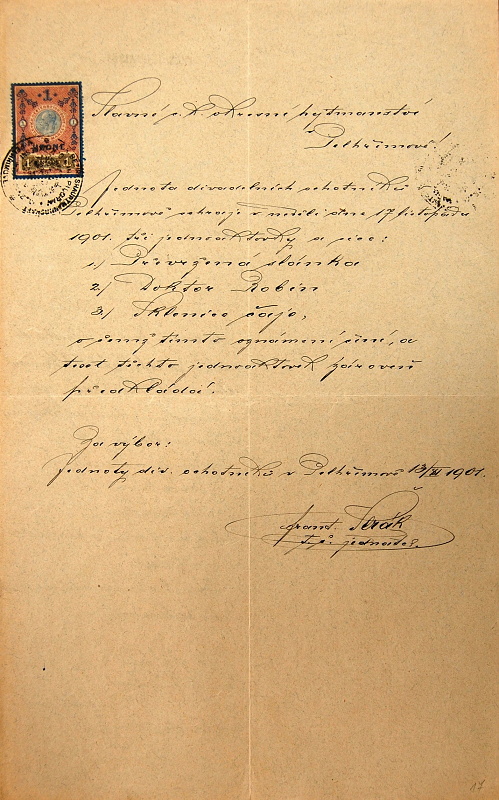 1
Slavné c. k. okresní hejtmanství
Pelhřimově
Jednota divadelních ochotníků
Pelhřimově sehraje v neděli dne 17 listopadu
1901. tři jednoaktovky a sice:
1.) Převržená slánka
2.) Doktor Robin
3.) Sklenice čaje;
o čemž tímto oznámení činí, a
text těchto jednoaktovek zároveň
předkládá.
Za výbor:
Jednoty div. ochotníků v Pelhřimově 13/XI 1901.
Frant. Šerák
t.č. jednatel.
17